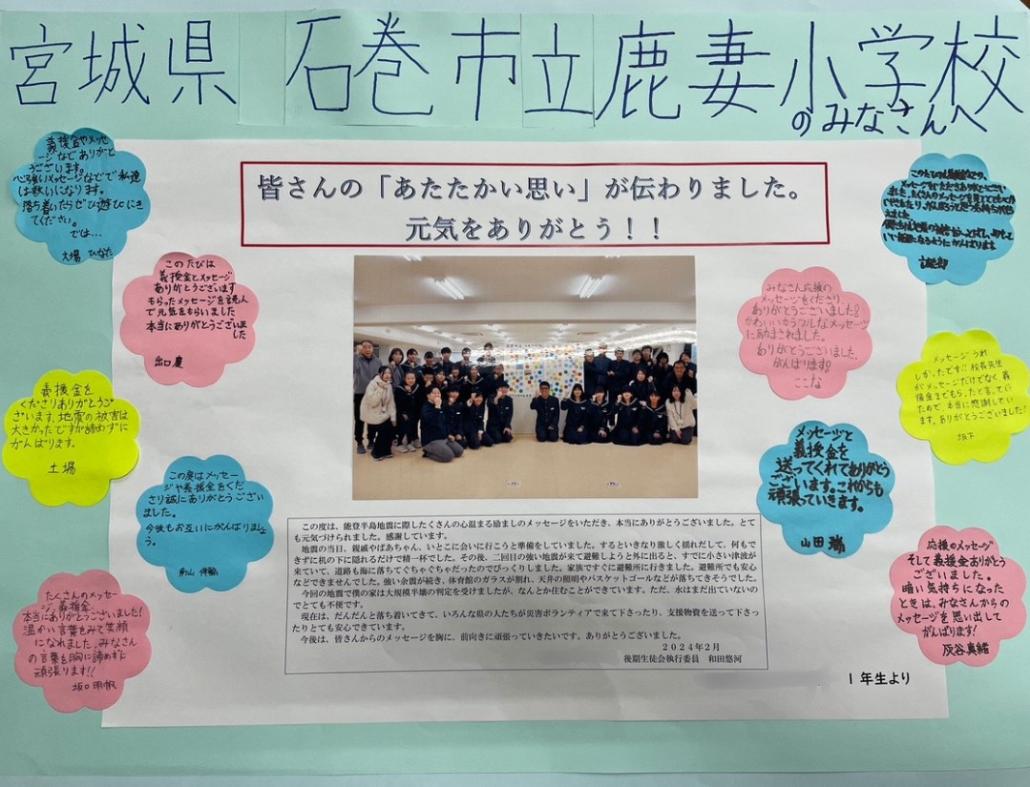 宮城県 石巻市立鹿妻小学校
のみなさんへ
皆さんの「あたたかい思い」が伝わりました。
元気をありがとう！！
義援金やメッセ
ージなどありがと
うございます。
心強いメッセージなどで私達
は救いになります。
落ち着いたらぜひ遊びにき
てください。
では…
大場 ひなた
このたびは
義援金とメッセージ
ありがとうございます
もらったメッセージを読んで
で元気をもらいました
本当にありがとうございま
した
出口 慶
義援金を
くださりありがとうご
ざいます。地震の被害は
大きかったですが諦めずに
がんばります。
土場
この度はメッセー
ジや義援金をくだ
さり誠にありがとうござい
ました。
今後もお互いにがんばりましょ
う。
たくさんのメッセー
ジ、義援金
本当にありがとうございました!
温かい言葉をみて笑顔
になれました。みなさん
の言葉を胸に諦めずに
頑張ります!!
坂口
みなさん応援の
メッセージをくださり
ありがとうございました!
かわいいカラフルなメッセージ
に励まされました。
ありがとうございました。
がんばります。
ここな
メッセージうれ
しかったです!!校長先生
がメッセージだけでなく義
援金までもらったと言っていた
ためで、本当に感謝してい
ます。ありがとうございました!
坂下
メッセージと
義援金を
送ってくれてありがとう
ございます。これからも
頑張っていきます。
山田 瑞
応援のメッセージ
そして義援金ありがとう
ございました。
暗い気持ちになった
ときは、みなさんからの
メッセージを思い出して
がんばります!
灰谷真緒
この度は、能登半島地震に際したくさんの心温まる励ましのメッセージをいただき、本当にありがとうございました。とて
も元気づけられました。感謝しています。
地震の当日、親戚やばあちゃん、いとこに会いに行こうと準備をしていました。するといきなり激しく揺れだして、何もで
きずに机の下に隠れるだけで精一杯でした。その後、二回目の強い地震が来て避難しようと外に出ると、すでに小さい津波が
来ていて、道路も海に落ちてぐちゃぐちゃだったのでびっくりしました。家族ですぐに避難所に行きました。避難所でも安心
などできませんでした。強い余震が続き、体育館のガラスが割れ、天井の照明やバスケットゴールなどが落ちてきそうでした。
今回の地震で僕の家は大規模半壊の判定を受けましたが、なんとか住むことができています。ただ、水はまだ出ていない
のでとても不便です。
現在は、だんだんと落ち着いてきて、いろんな県の人たちが災害ボランティアで来て下さったり、支援物資を送って下さっ
たりとても安心できています。
今後は、皆さんからのメッセージを胸に、前向きに頑張っていきたいです。ありがとうございました。
２０２４年２月
後期生徒会執行委員 和田悠河
１年生より